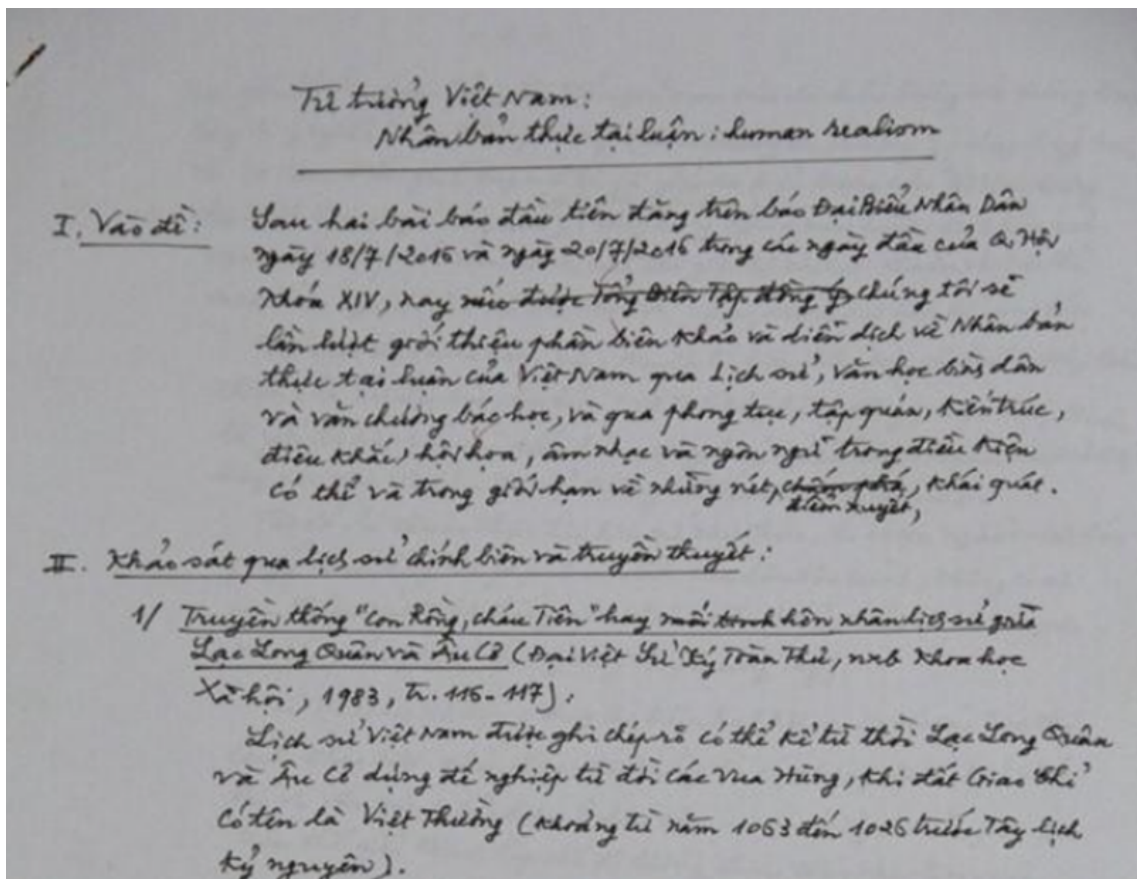 Tư tưởng Việt Nam:
Nhân bản thực tại luận: human realism
I. Vào đề: Sau hai bài báo đầu tiên đăng trên báo Đại Biểu Nhân Dân
ngày 18/7/2016 và ngày 20/7/2016 trong các ngày đầu của Q. Hội
khóa XIV, nay nếu được Tổng Biên Tập đồng ý chúng tôi sẽ
lần lượt giới thiệu phần biên khảo và diễn dịch về Nhân bản
thực tại luận của Việt Nam qua Lịch sử, văn học bình dân
và văn chương bác học, và qua phong tục, tập quán, kiến trúc,
điêu khắc, hội họa, âm nhạc và ngôn ngữ trong điều kiện
có thể và trong giới hạn về những nét, chấm phá, khái quát.
điểm xuyết,
II. Khảo sát qua lịch sử chính biên và truyền thuyết:
1/ Truyền thống "con Rồng, cháu Tiên" hay mối tình hôn nhân lịch sử giữa
Lạc Long Quân và Âu Cơ (Đại Việt Sử Ký Toàn Thư, nxb Khoa học
Xã hội, 1983, tr. 116-117).
Lịch sử Việt Nam được ghi chép rõ có thể kể từ thời Lạc Long Quân
và Âu Cơ dựng đế nghiệp từ đời các Vua Hùng, khi đất Giao Chỉ
có tên là Việt Thường (khoảng từ năm 1063 đến 1026 trước Tây lịch
kỷ nguyên).